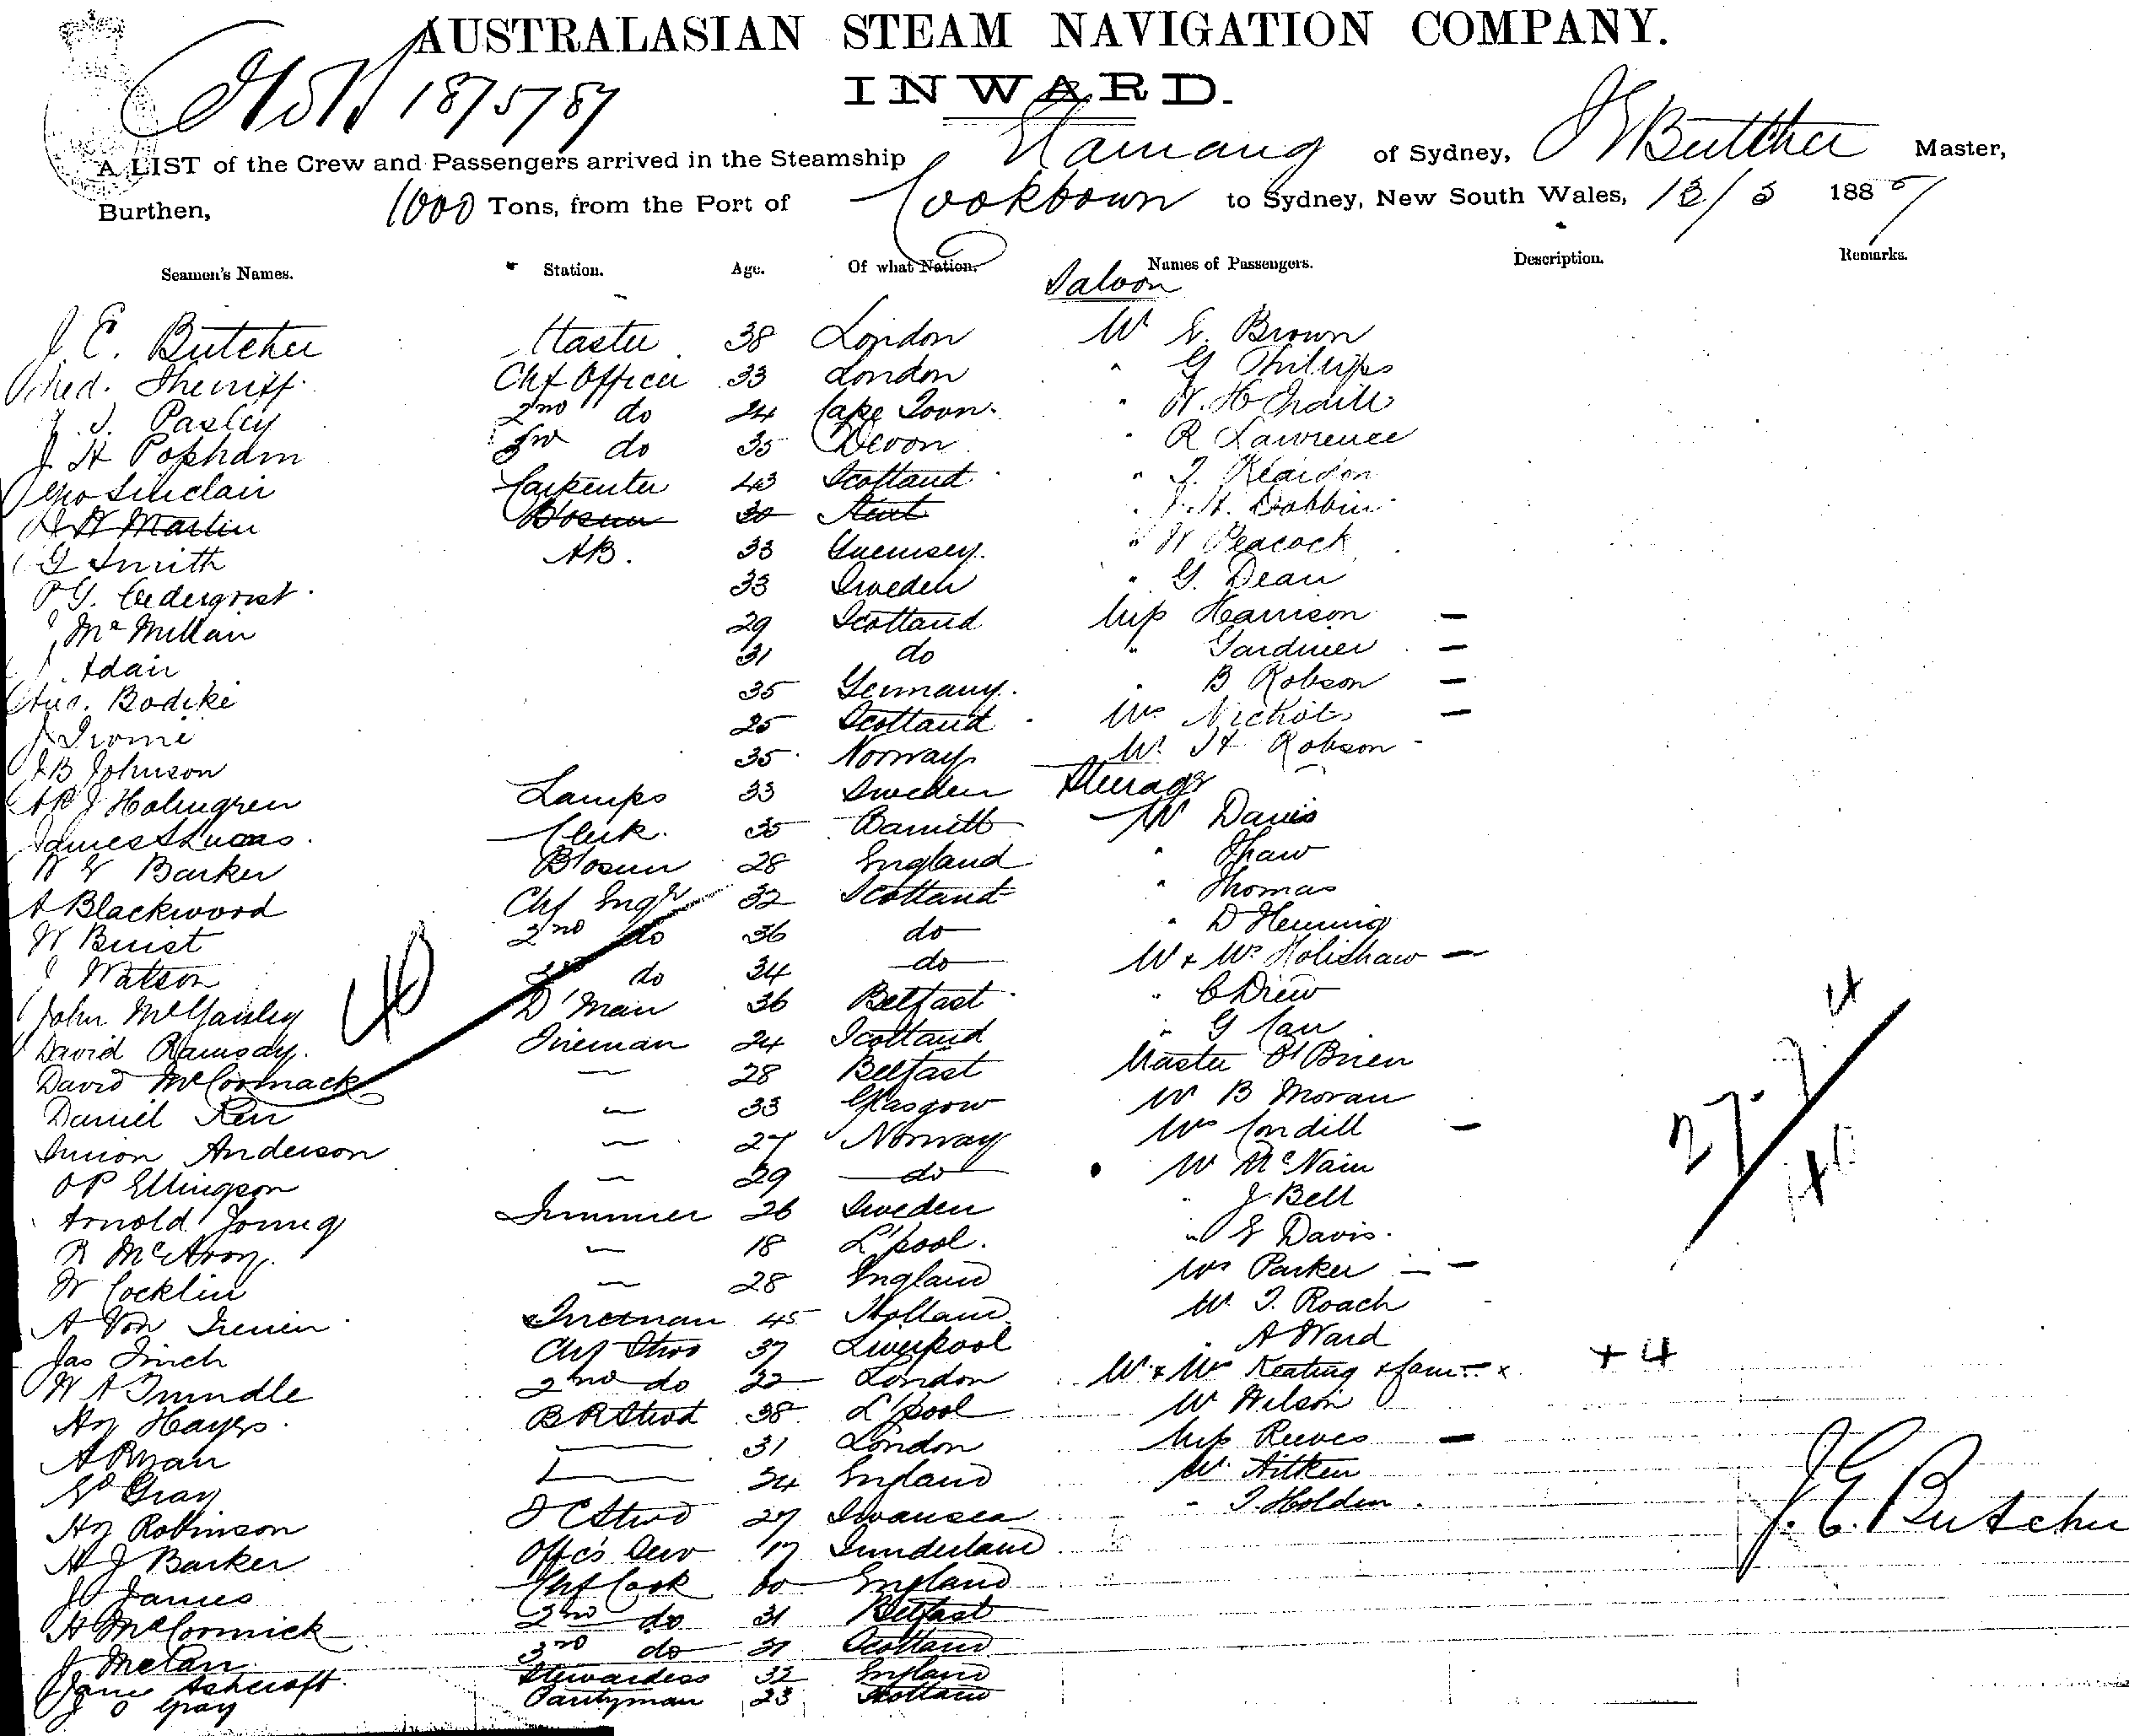 AUSTRALASIAN STEAM NAVIGATION COMPANY.
INWARD.
18/5/87
A LIST of the Crew and Passengers arrived in the Steamship Namang of Sydney, J E Butcher Master,
Burthen, 1000 Tons, from the Port of Cooktown to Sydney, New South Wales, 18/5 188
Seamen's Names. Station. Age. Of what Nation. Names of Passengers. Description. Remarks.
Saloon
J. E. Butcher Master 38 London Mr E. Brown
Fred. Sherriff Chf Officer 33 London " G Phillips
J. Pasley 2nd do 24 Cape Town. " W. H
J H Popham 3rd do 35 Devon " R Lawrence
Geo Sinclair Carpenter 43 Scotland " J. Reardon
W Martin Bosun 30 Kent " J. H. Dobbin
G Smith AB. 33 Guernsey. " W Peacock
P G. Cederqvist. 33 Sweden " G. Dean
J McMillan 29 Scotland Miss Harrison —
J. Adair 31 do " Gardiner —
Aug. Bodike 35 Germany. " B Robson —
J 25 Scotland Mrs Nichols —
J B Johnson 35 Norway Mr H Robson -
Steerage
A P J Holmgren Lamps 33 Sweden
James S Lucas. Clerk. 35 Mr Davis
W E Barker Bosun 28 England " Shaw
A Blackwood Chf Engr 32 Scotland " Thomas
W Buist 2nd do 36 do " D Heming
J Watson 3rd do 34 do Mr & Mrs Holishaw —
John McGauley D'man 36 Belfast " C Drew
David Ramsay. Fireman 24 Scotland " G Carr
David McCormack — 28 Belfast Master O'Brien
Daniel Kerr — 33 Glasgow Mr B Moran
Simon Anderson — 27 Norway Mrs Condill —
O P Ellingson — 29 do Mr McNair
Arnold Young Trimmer 26 Sweden " J Bell
R McAvoy — 18 L'pool. " E Davis.
W Cocklin — 28 England Mrs Parker —
A Von Fireman 45 Holland Mr J. Roach
Jas Finch Chf Stwd 37 Liverpool " A Ward
W A Trundle 2nd do 22 London Mr & Mrs Keating & fam
+4
Hy Hayes. B R Stwd 38 L'pool Mr Wilson
A Ryan — 31 London Miss Reeves —
Gray — 24 England Mr Aitken
Hy Robinson F C Stwd 27 Swansea " J. Holden
H J Barker Offc's Serv 17 Sunderland
J James Chf Cook 60 England
H McCormick 2nd do 31 Belfast
J 3rd do 21 Scotland
Jane Ashcroft. Stewardess 32 England
J O Gray Pantryman 23 Scotland
40
27. 7. 4
J. E. Butcher